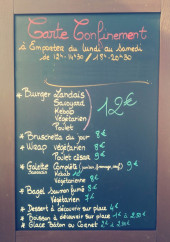 Carte Confinement
à Emporter du lundi au samedi
de 12h-14h30 / 18h-20h30
* Burger Landais
Savoyard
Kebab
Végétarien
Poulet
12€
* Bruschetta du jour 8€
* Wrap Végétarien 8€
Poulet césar 9€
* Galette Complète (jambon, fromage, oeuf) 9€
Kebab 10€
Végétarienne 8€
* Bagel Saumon fumé 8€
Végétarien 7€
* Dessert à découvrir sur place 4€
* Boisson à découvrir sur place
* Glace Bâton ou Cornet